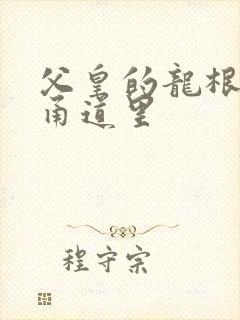 父皇的龍根
甬道里
程守宗